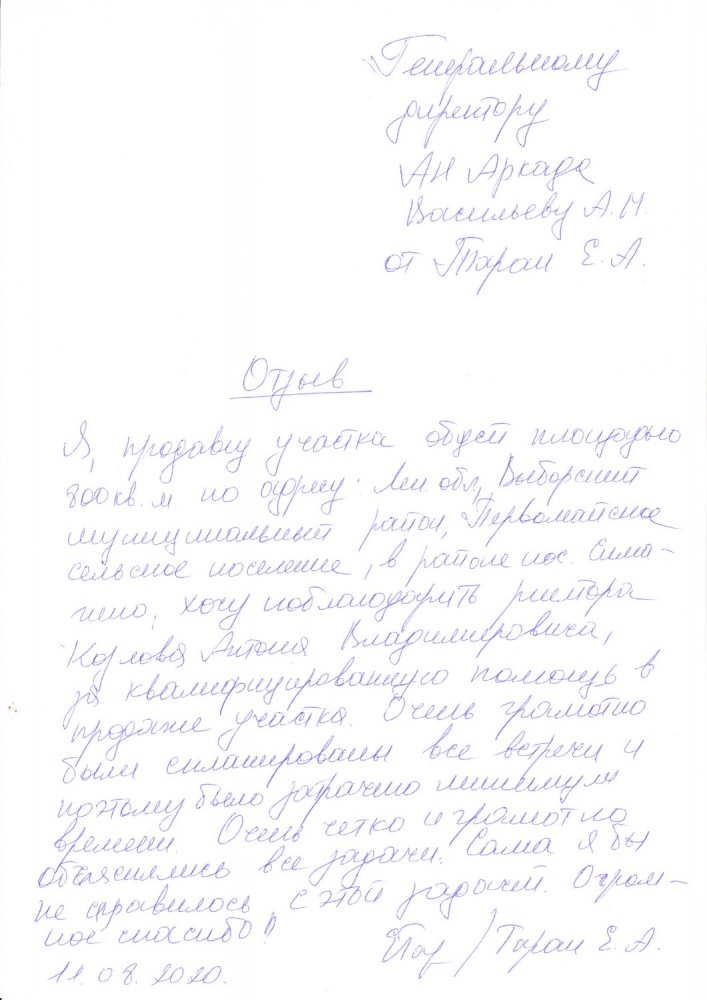 Генеральному
директору
АН Аркада
Васильеву А.М.
от Таран Е.А.
Отзыв
Я, продавец участка общей площадью
800 кв. м по адресу: Лен. обл, Выборгский
муниципальный район, Первомайское
сельское поселение, в районе пос. Сима-
гино, хочу поблагодарить риелтора
Козлова Антона Владимировича,
за квалифицированную помощь в
продаже участка. Очень грамотно
были спланированы все встречи и
поэтому было затрачено минимум
времени. Очень четко и грамотно
объяснялись все задачи. Сама я бы
не справилась с этой задачей. Огром-
ное спасибо!!
/ Таран Е.А.
11.08.2020.